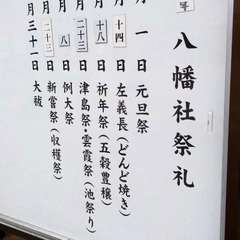 八幡社祭礼
月一日 元旦祭
月十四日 左義長(どんど焼き)
月 日 祈年祭(五穀豊穣)
月二十三日 津島祭・雲霞祭(池祭り)
月八日 例大祭
月二十三日 新嘗祭(収穫祭)
月三十一日 大祓